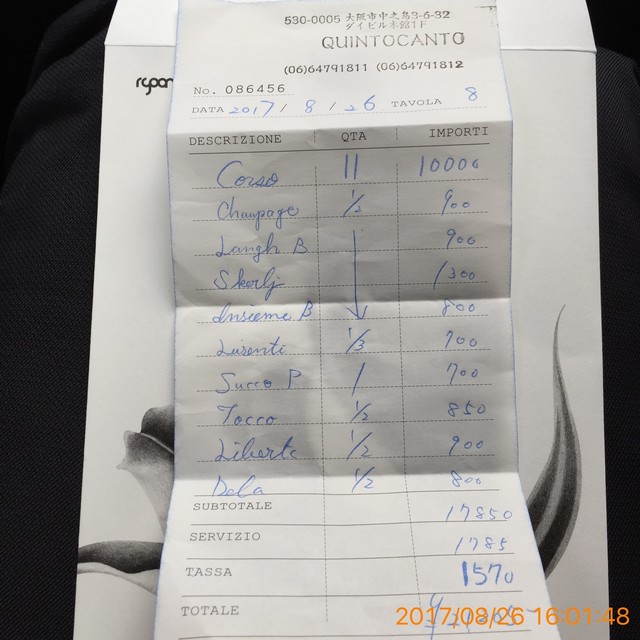 530-0005 大阪市中之島3-6-32
ダイビル本館1F
QUINTOCANTO
(06)64791811 (06)64791812
No. 086456
DATA 2017 / 8 / 26 TAVOLA 8
DESCRIZIONE QTA IMPORTI
Corso 11 10000
Champage 1/2 900
Langh B 900
Skerlj 1300
Insieme B 800
Lisenti 1/3 900
Succo P 1 700
Tocco 1/2 850
Liberte 1/2 900
Dela 1/2 800
SUBTOTALE 17850
SERVIZIO 1785
TASSA 1570
TOTALE
2017/08/26 16:01:48